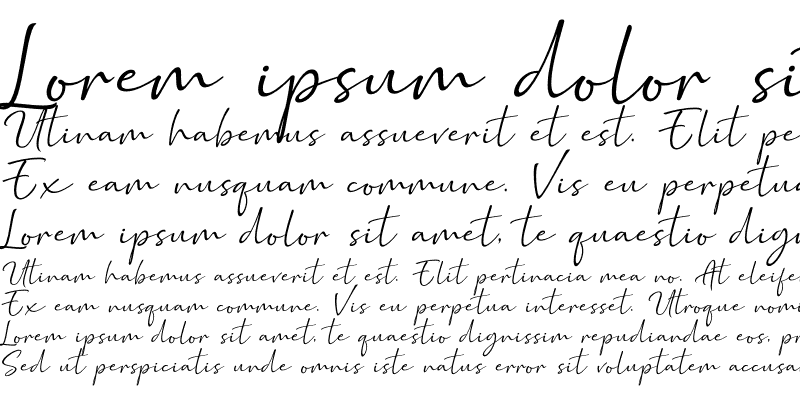 Lorem ipsum dolor si
Utinam habemus assueverit et est. Elit pe
Ex eam nusquam commune. Vis eu perpetua
Lorem ipsum dolor sit amet, te quaestio dign
Utinam habemus assueverit et est. Elit pertinacia mea no. At eleife
Ex eam nusquam commune. Vis eu perpetua interesset. Utroque nomi
Lorem ipsum dolor sit amet, te quaestio dignissim repudiandae eos, pr
Sed ut perspiciatis unde omnis iste natus error sit voluptatem accusa